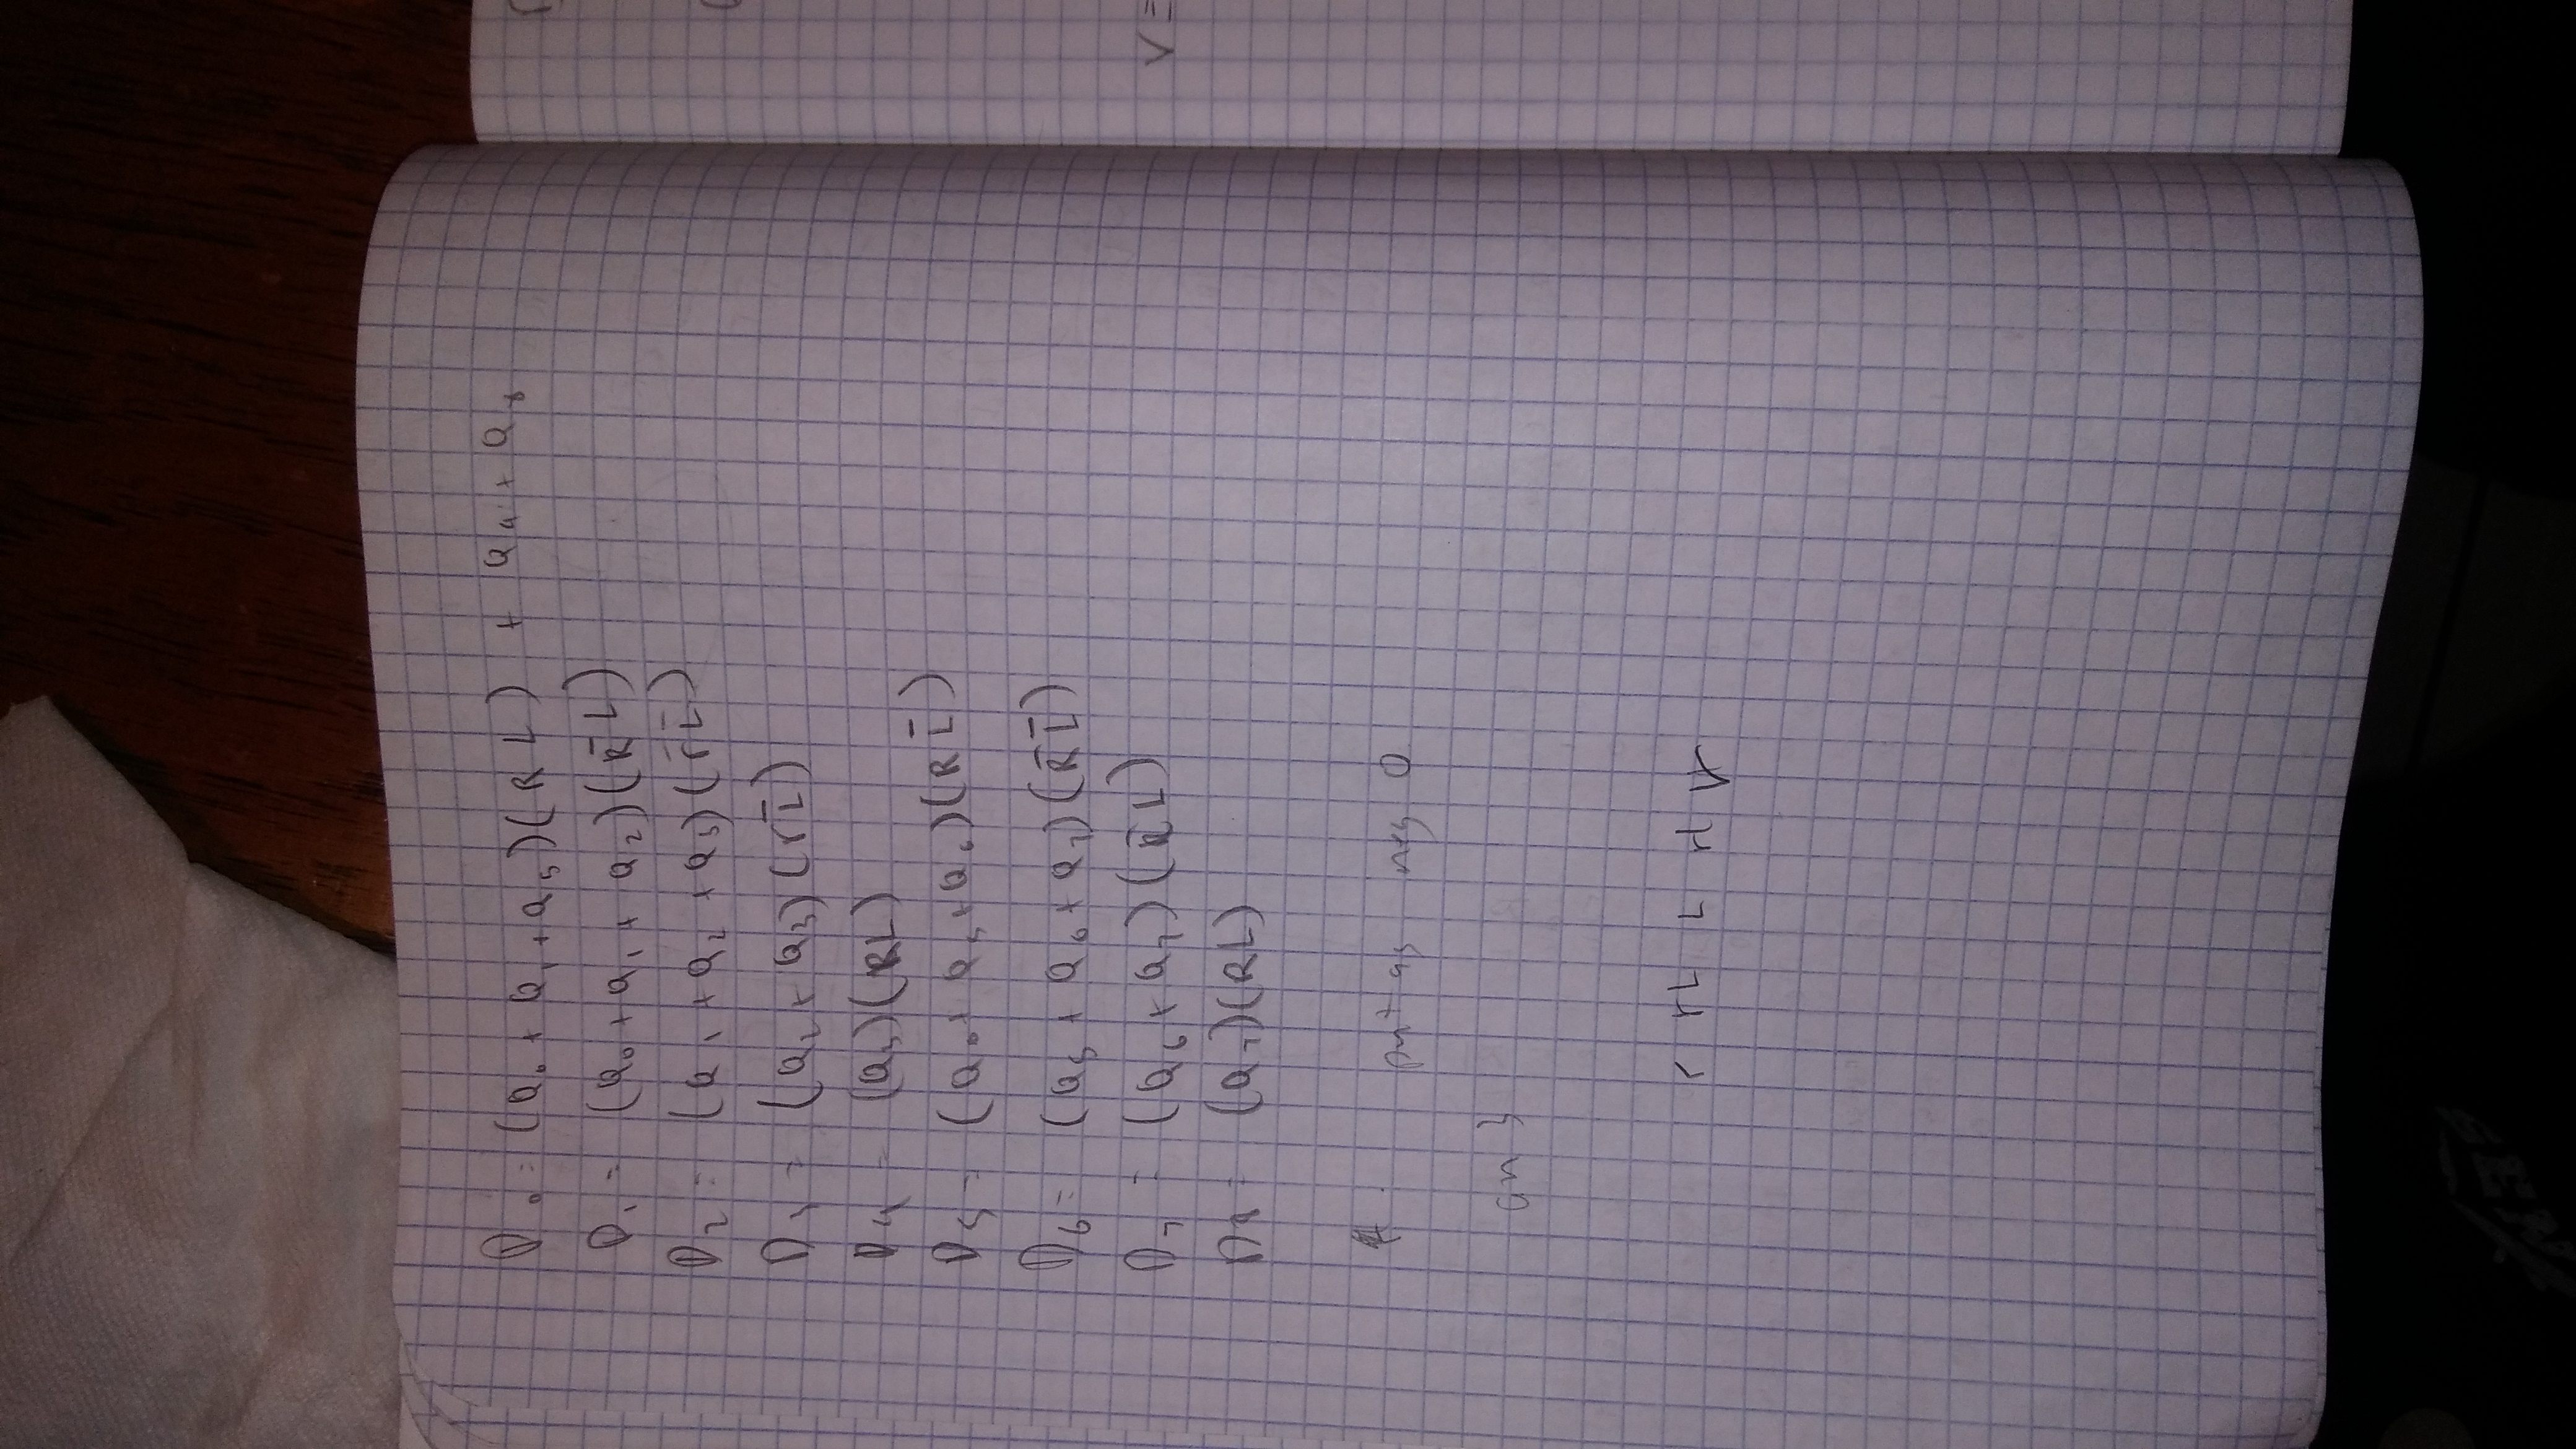 D₀ = (Q₀ + Q₁ + Q₅)(R L) + Q₄ + Q₈
D₁ = (Q₀ + Q₁ + Q₂)(R̅ L)
D₂ = (Q₁ + Q₂ + Q₃)(r̅ L̅)
D₃ = (Q₂ + Q₃)(r L̅)
D₄ = (Q₃)(RL)
D₅ = (Q₀ + Q₅ + Q₆)(R L̅)
D₆ = (Q₅ + Q₆ + Q₇)(R̅ L̅)
D₇ = (Q₆ + Q₇)(R̅ L)
D₈ = (Q₇)(RL)
V =
put as neg 0
r rL L rl